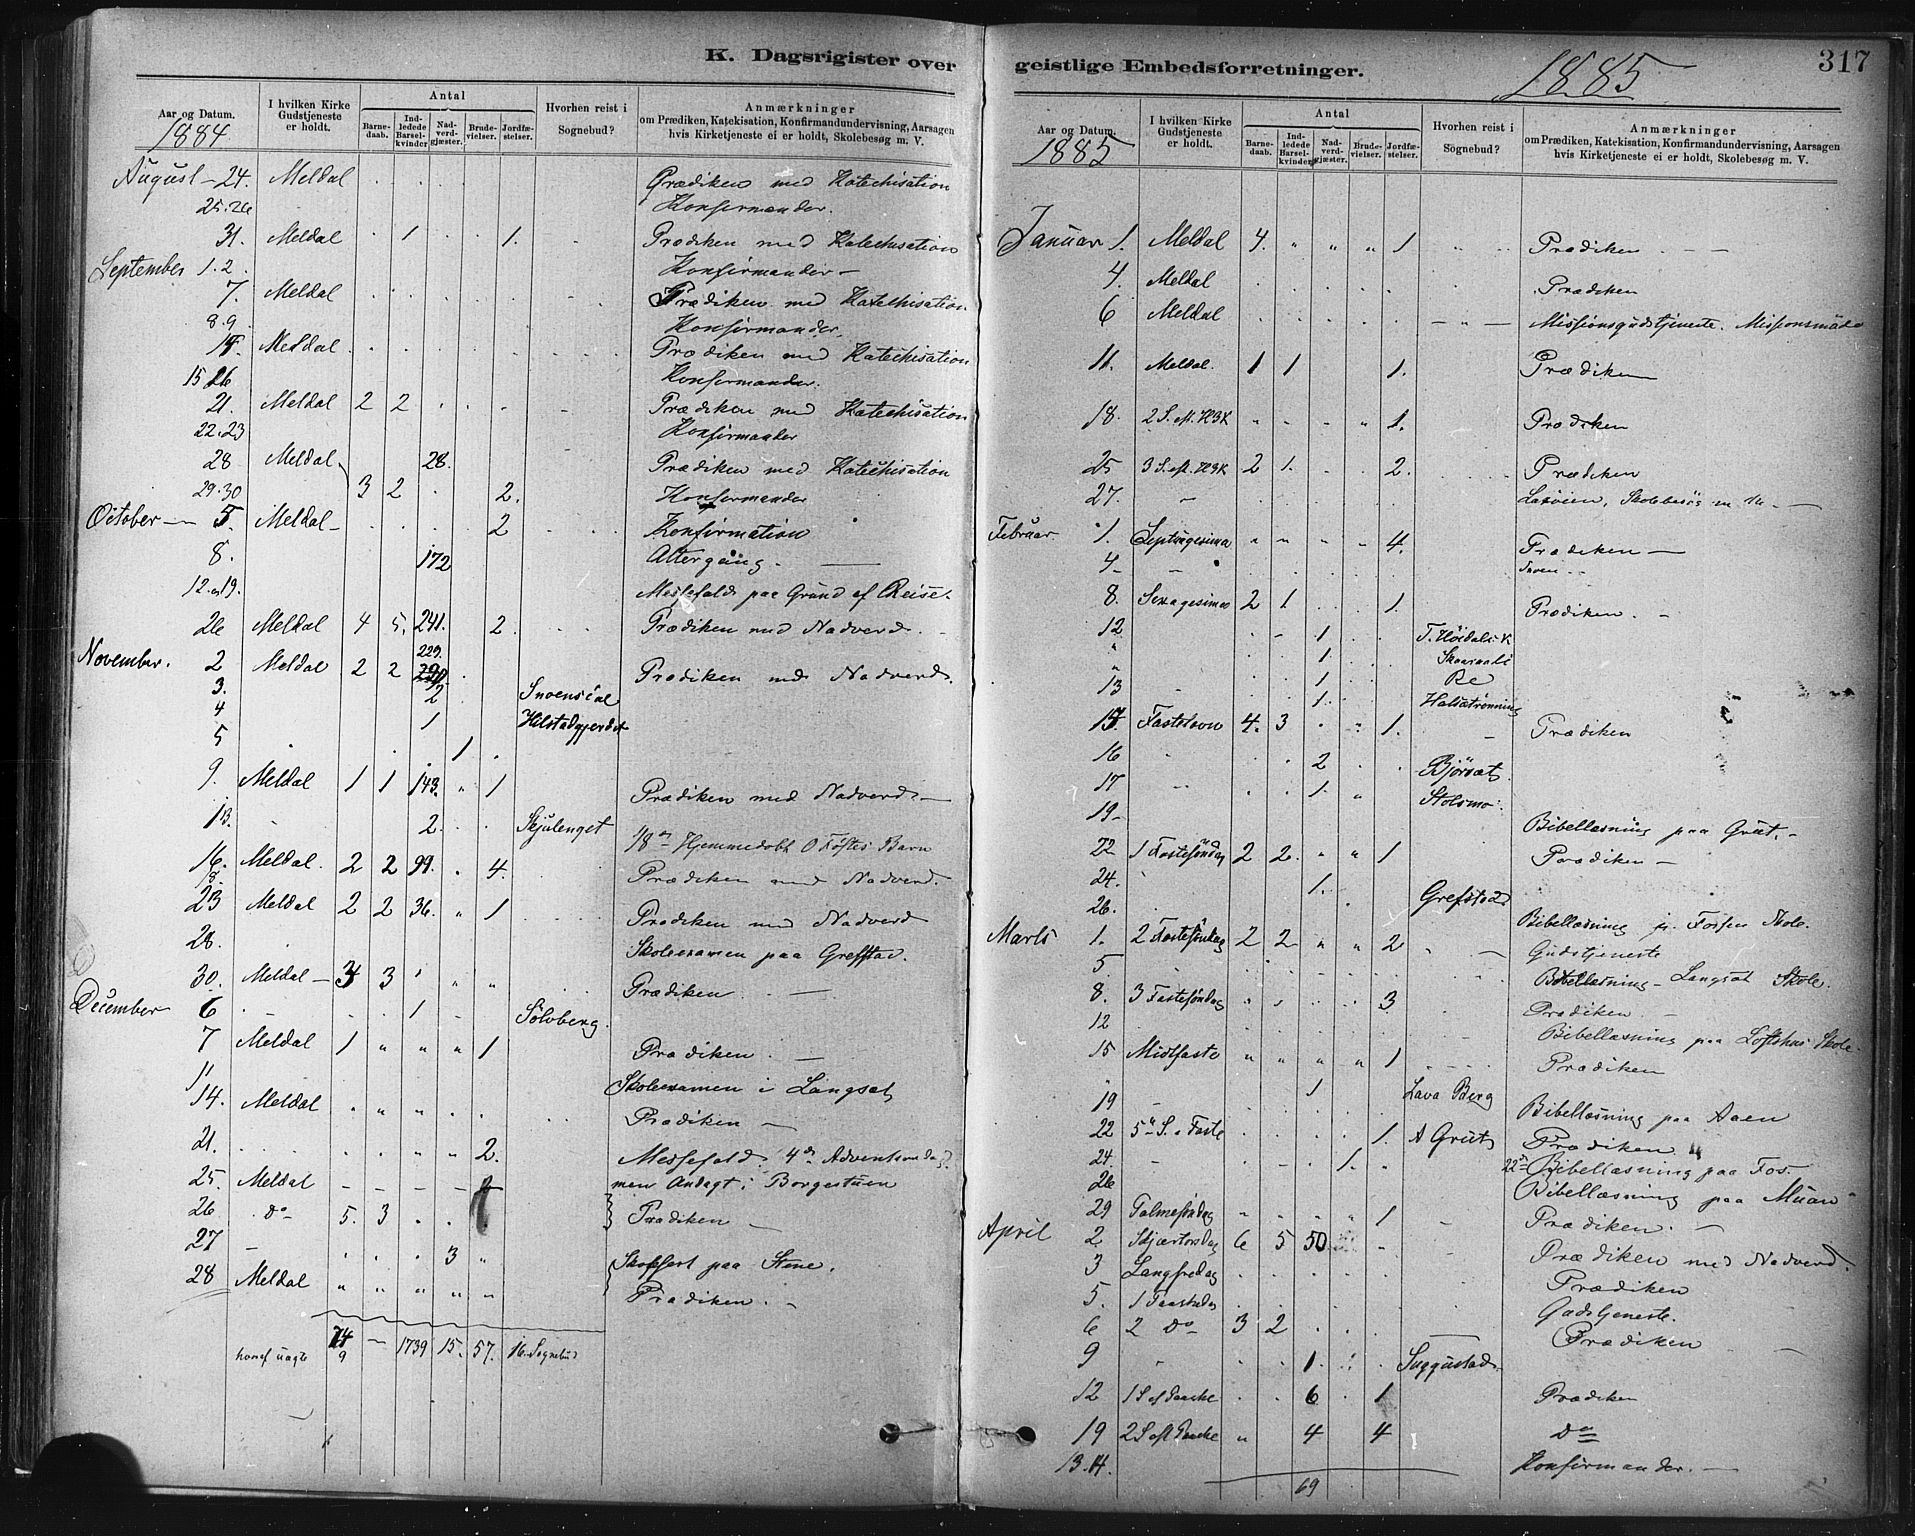 K. Dagsrigister over
Aar og Datum.
I hvilken Kirke Gudstjeneste er holdt.
Antal
Barnedaab.
Indledede Barselkvinder
Nadverdgjæster.
Brudevielser.
Jordfæstelser.
Hvorhen reist i Sognebud?
Anmærkninger
om Prædiken, Katekisation, Konfirmandundervisning, Aarsagen
hvis Kirketjeneste ei er holdt, Skolebesøg m. V.
1884
August - 24. Meldal Prædiken med Katechisation
25.26 Konfirmander.
31. Meldal 1 1. Prædiken med Katechisation
September 1.2. Konfirmander -
7. Meldal Prædiken med Katechisation
8.9. Konfirmander.
14 Meldal Prædiken med Katechisation
15 16 Konfirmander.
21. Meldal 2 2 Prædiken med Katechisation
22.23 Konfirmander
28 Meldal 28. Prædiken med Katechisation
29.30 3 2 2. Konfirmander
October - 5. Meldal - 2 Konfirmation
8. 172 Altergang.
12. og 19. Messefald paa Grund af Reise.
26 Meldal 4 5. 241. 2. Prædiken med Nadverd.
November. 2 Meldal 2 2 229. Prædiken med Nadverd.
3. 2
4 1
5 1
9. Meldal 1 1 143. " 1 Prædiken med Nadverd -
13. 2. Skjulenget 18de Hjemmedøbt Barn
16. Meldal. 2 2 99. 4. Prædiken med Nadverd.
23 Meldal 2 2 36. " 1 Prædiken med Nadverd
28. Skoleexamen paa Grefstad.
30. Meldal - 3 " " Prædiken. -
December 6 1 Sölvberg.
7 Meldal 1 " " " 1 Prædiken. -
11 Skoleexamen i Langsæt
14. Meldal Prædiken -
21. " " 2. Messefald 4de Adventsøndag
men Andagt i Borgestuen
25. Meldal
26 Do 5. 3 Prædiken -
27 3 " paa Stene.
28 Meldal " " " " " Prædiken. -
74 - 1739 15. 57. 16. Sognebud
9
geistlige Embedsforretninger.
1885
317
Aar og Datum.
I hvilken Kirke Gudstjeneste er holdt.
Antal
Barnedaab.
Indledede Barselkvinder
Nadverdgjæster.
Brudevielser.
Jordfæstelser.
Hvorhen reist i Sognebud?
Anmærkninger
om Prædiken, Katekisation, Konfirmandundervisning, Aarsagen
hvis Kirketjeneste ei er holdt, Skolebesøg m. V.
1885
Januar 1. Meldal 4. " " " 1 Prædiken
4 Meldal Prædiken
6 Meldal Missionsgudstjeneste. Missionsmøde
11. Meldal. 1 1 1. Prædiken
18. 2 S. e. H3K 1. Prædiken
25 3 S. e. H3K 2 1. 2. Prædiken
27. Skolebesøg
Februar 1. Septuagesima " " 4. Prædiken -
4
8. Sexagesima 2 1 1. Prædiken. -
12 1
" 1
" 1 Re
13 1.
15 Fastelavn 4. 3 1. Prædiken
16 2 Bjørsæt.
17 1. Stolsmo.
19 Bibellæsning paa Grut. -
22 1 Fastesöndag 2 2. " " 1 Prædiken -
24. 1. Grefstad
26. Bibellæsning Skole.
Marts 1. 2 Fastesöndag 2 2 " " 2 Gudstjeneste
5. Bibellæsning - Langsæt Skole.
8. 3 Fastesöndag 3 Prædiken. -
12 Bibellæsning paa Loftshus Skole.
15 Midtfaste " " " " 1 Prædiken
" 1 Lava Berg
19 Bibellæsning paa Aaen
22 5te S. i Faste 1. A Grut Prædiken
24. 1. Bibellæsning paa Fos
26 Bibellæsning paa Muan
29 Palmesöndag 1 Prædiken. -
April 2 Skjærtorsdag 6 5 50 Prædiken med Nadverd.
3 Langfredag Prædiken
5. 1 Paaskedag Gudstjeneste.
6 2 Do 3 2 Prædiken
9 1.
12 1 S. ef Paaske 6 1 Prædiken
19 2 S eft Paaske " 4 4 Do
13.14. Konfirmander. -
69